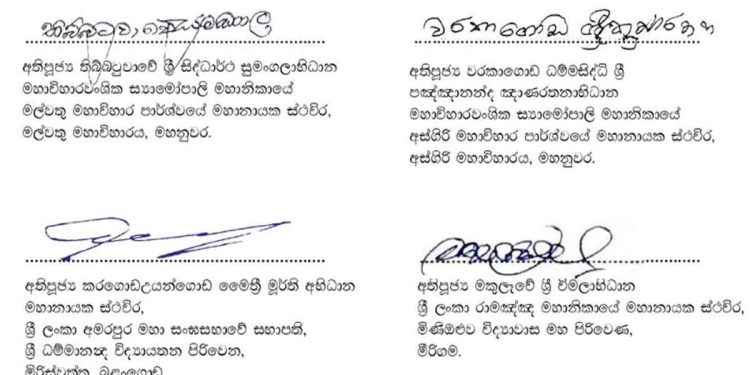 අතිපූජ්‍ය තිබ්බටුවාවේ ශ්‍රී සිද්ධාර්ථ සුමංගලාභිධාන
මහාවිහාරවංශික ස්‍යාමෝපාලි මහානිකායේ
මල්වතු මහාවිහාර පාර්ශ්වයේ මහානායක ස්ථවිර,
මල්වතු මහාවිහාරය, මහනුවර.
අතිපූජ්‍ය වරකාගොඩ ධම්මසිද්ධි ශ්‍රී
පඤ්ඤානන්ද ඤාණරතනාභිධාන
මහාවිහාරවංශික ස්‍යාමෝපාලි මහානිකායේ
අස්ගිරි මහාවිහාර පාර්ශ්වයේ මහානායක ස්ථවිර,
අස්ගිරි මහාවිහාරය, මහනුවර.
අතිපූජ්‍ය කරගොඩඋයන්ගොඩ මෛත්‍රී මූර්ති අභිධාන
මහානායක ස්ථවිර,
ශ්‍රී ලංකා අමරපුර මහා සංඝසභාවේ සභාපති,
ශ්‍රී ධම්මානන්ද විද්‍යායතන පිරිවෙන,
මිරිස්වත්ත, බළංගොඩ
අතිපූජ්‍ය මකුලෑවේ ශ්‍රී විමලාභිධාන
ශ්‍රී ලංකා රාමඤ්ඤ මහානිකායේ මහානායක ස්ථවිර,
මිණිඔළුව විද්‍යාවාස මහ පිරිවෙණ,
මීරිගම.